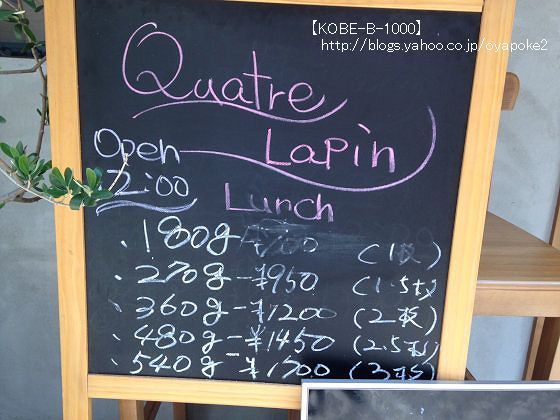 【KOBE-B-1000】
http://blogs.yahoo.co.jp/oyapoke2
Quatre
Lapin
Open
12:00
Lunch
・180g-¥700 (1枚)
・270g-¥950 (1.5枚)
・360g-¥1200 (2枚)
・480g-¥1450 (2.5枚)
・540g-¥1700 (3枚)